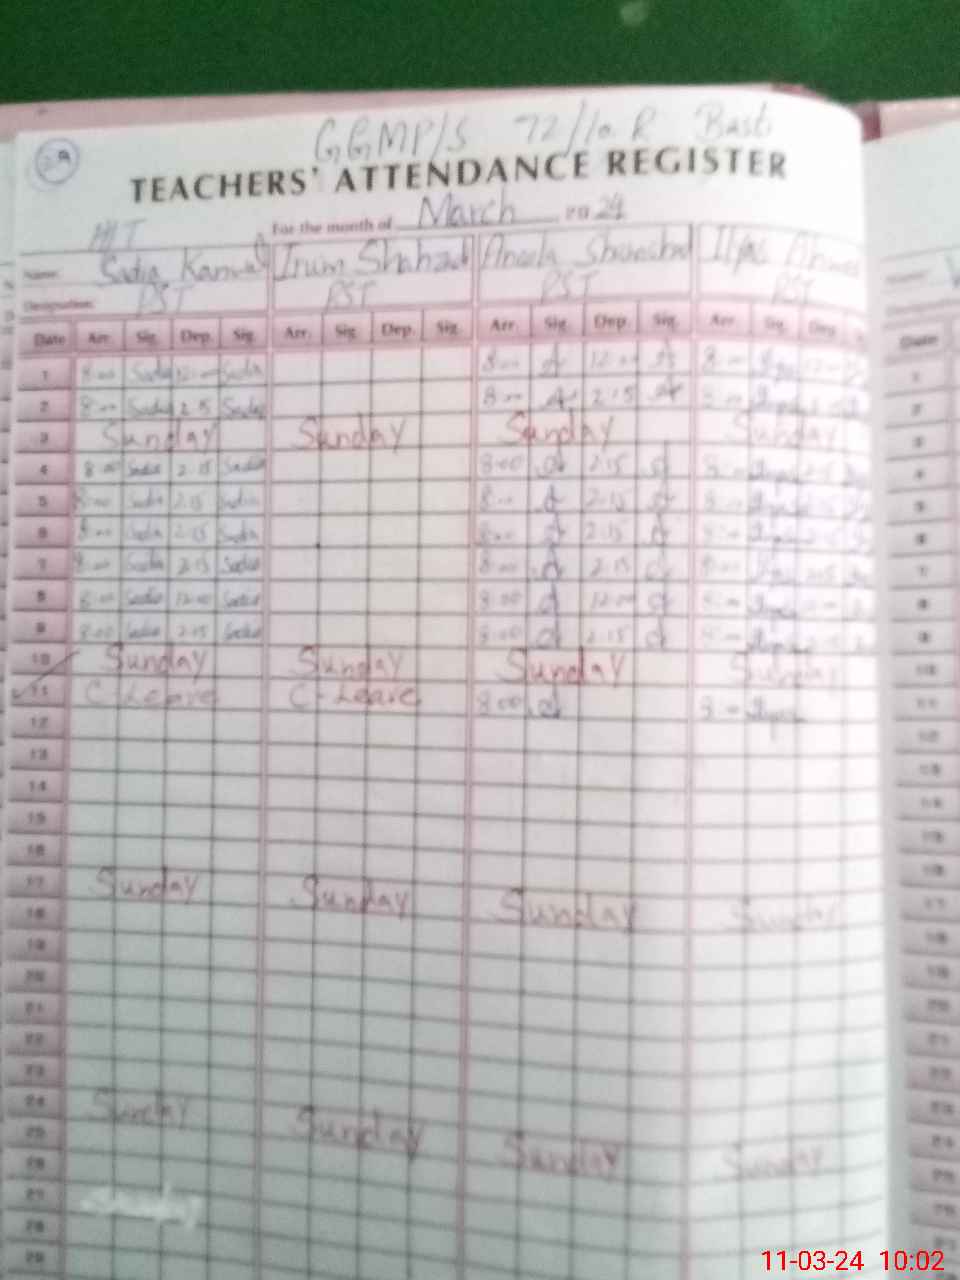 29
GGMP/S 72/10 R Basti
TEACHERS' ATTENDANCE REGISTER
For the month of March 2024
HT
Name: Sadia Kanwal Irum Shahzadi Aneela Ilyas Ahmed
Designation: PST PST PST PST
Date Arr. Sig. Dep. Sig. Arr. Sig. Dep. Sig. Arr. Sig. Dep. Sig. Arr. Sig. Dep.
1 8:00 Sadia 12:00 Sadia 8:00 12:00 8:00
2 8:00 Sadia 2:15 Sadia 8:00 2:15 8:00
3 Sunday Sunday Sunday Sunday
4 8:00 Sadia 2:15 Sadia 8:00 2:15 8:00
5 8:00 Sadia 2:15 Sadia 8:00 2:15 8:00
6 8:00 Sadia 2:15 Sadia 8:00 2:15 8:00
7 8:00 Sadia 2:15 Sadia 8:00 2:15 8:00
8 8:00 Sadia 12:00 Sadia 8:00 12:00 8:00
9 8:00 Sadia 2:15 Sadia 8:00 2:15 8:00
10 Sunday Sunday Sunday Sunday
11 C-Leave C-Leave 8:00 8:00
12
13
14
15
16
17 Sunday Sunday Sunday Sunday
18
19
20
21
22
23
24 Sunday Sunday Sunday Sunday
25
26
27
28
29
11-03-24 10:02